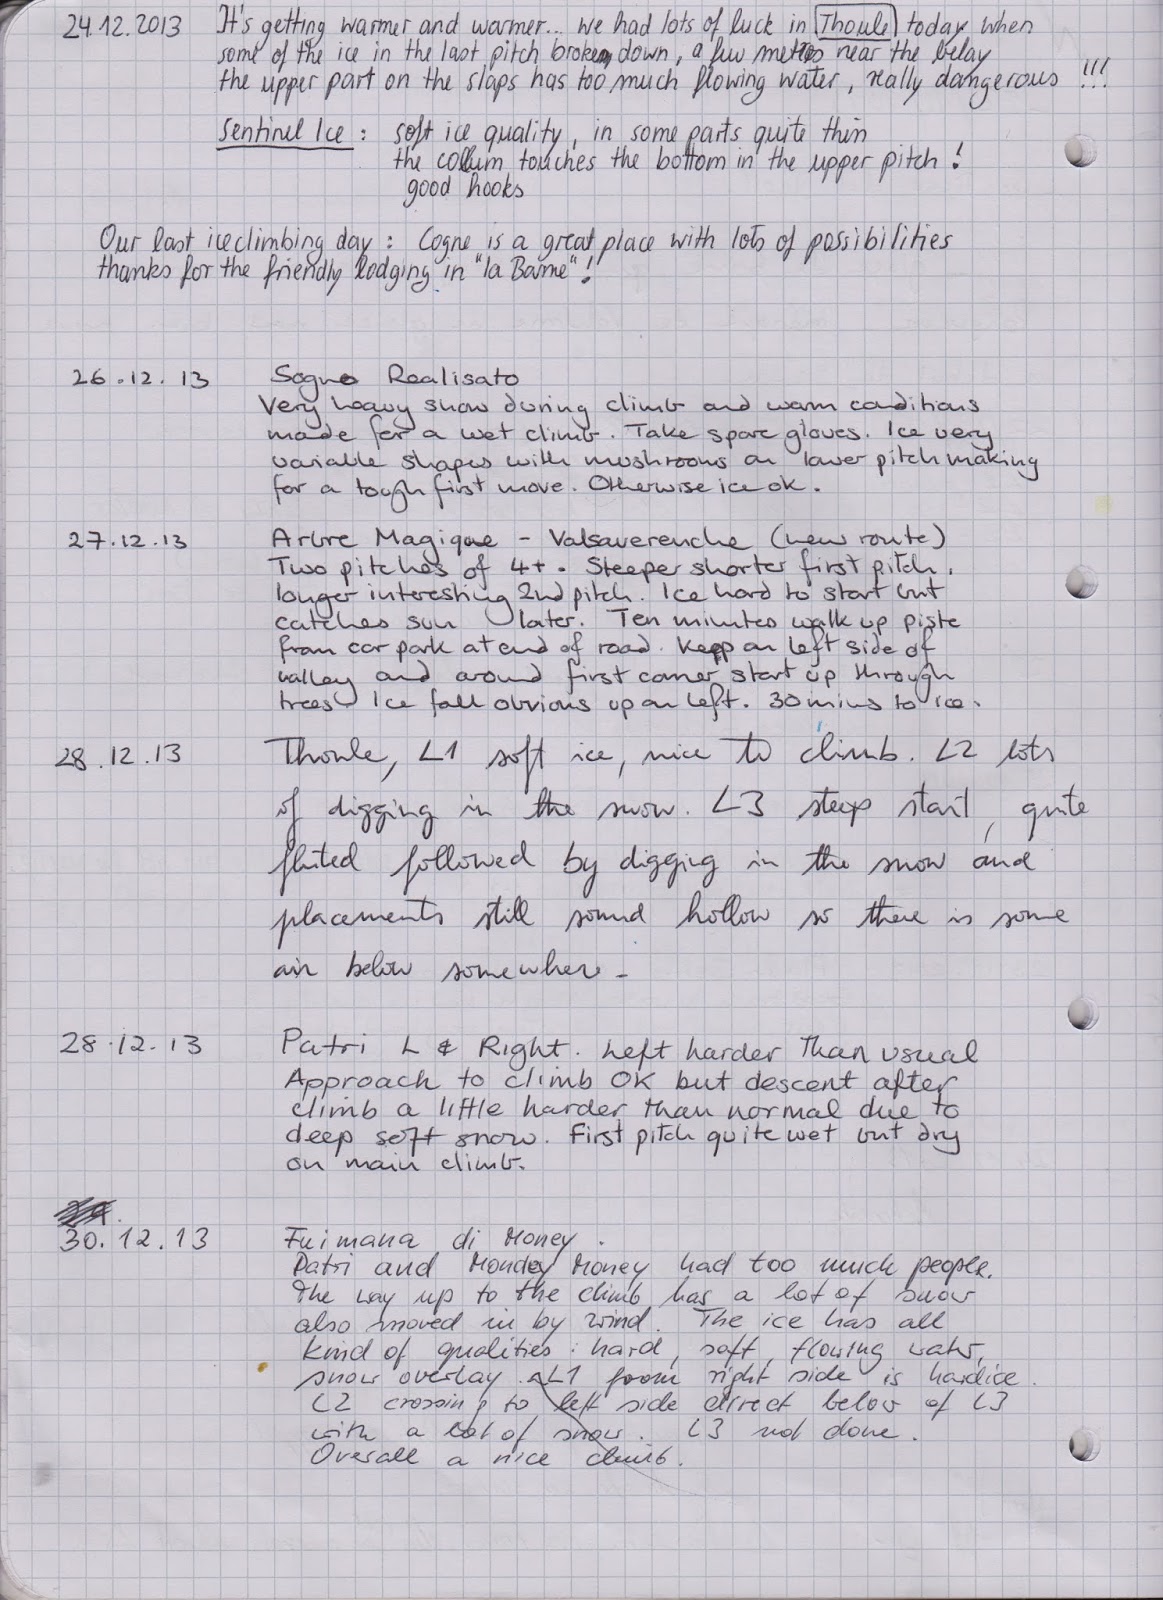 24.12.2013 It's getting warmer and warmer... we had lots of luck in Thoule today when
some of the ice in the last pitch broken down, a few metres near the belay
the upper part on the slaps has too much flowing water, really dangerous !!!
Sentinel Ice : soft ice quality, in some parts quite thin
the collum touches the bottom in the upper pitch !
good hooks
Our last iceclimbing day : Cogne is a great place with lots of possibilities
thanks for the friendly lodging in "la Barme" !
26.12.13 Sogno Realisato
Very heavy snow during climb and warm conditions
made for a wet climb. Take spare gloves. Ice very
variable shapes with mushrooms on lower pitch making
for a tough first move. Otherwise ice ok.
27.12.13 Arbre Magique - Valsaverenche (new route)
Two pitches of 4+. Steeper shorter first pitch,
longer interesting 2nd pitch. Ice hard to start but
catches sun later. Ten minutes walk up piste
from car park at end of road. Keep on left side of
valley and around first corner start up through
trees Ice fall obvious up on left. 30 mins to ice.
28.12.13 Thoule, L1 soft ice, nice to climb. L2 lots
of digging in the snow. L3 steep start, quite
fluted followed by digging in the snow and
placements still sound hollow so there is some
air below somewhere -
28.12.13 Patri L & Right. Left harder than usual
Approach to climb OK but descent after
climb a little harder than normal due to
deep soft snow. First pitch quite wet but dry
on main climb.
30.12.13 Fuimana di Money.
Patri and Money had too much people.
The way up to the climb has a lot of snow
also moved in by wind. The ice has all
kind of qualities : hard, soft, flowing water,
snow overlay. L1 from right side is hard ice.
L2 crossing to left side direct below of L3
with a lot of snow. L3 not done.
Overall a nice climb.